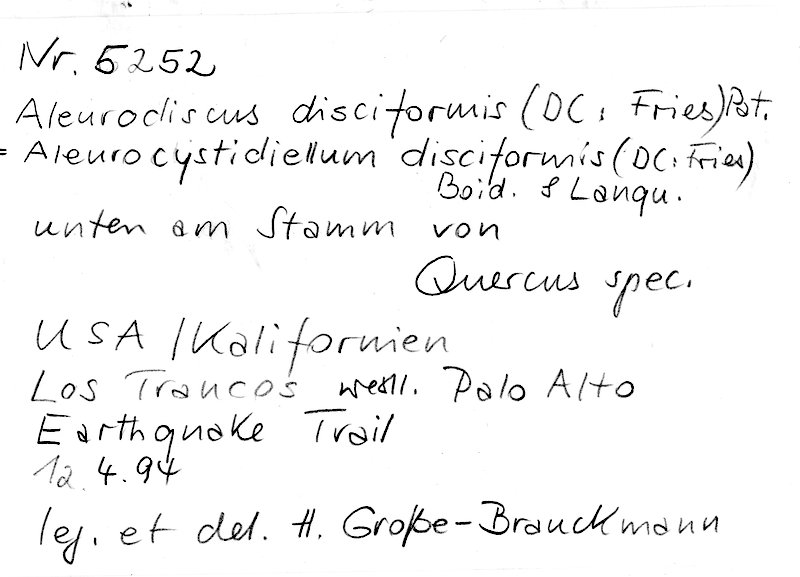 Nr. 5252
Aleurodiscus disciformis (DC: Fries) Pat.
= Aleurocystidiellum disciformis (DC: Fries)
Boid. & Lanqu.
unten am Stamm von
Quercus spec.
USA / Kalifornien
Los Trancos westl. Palo Alto
Earthquake Trail
12.4.94
leg. et det. H. Große-Brauckmann